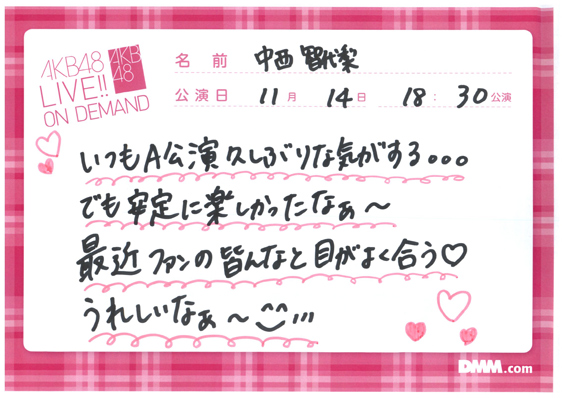 AKB48
LIVE!!
ON DEMAND
AKB
48
名前 中西 智代梨
公演日 11月 14日 18:30公演
いつもA公演久しぶりな気がする。。。
でも安定に楽しかったなぁ〜
最近ファンの皆んなと目がよく合う♡
うれしいなぁ〜^^
DMM.com